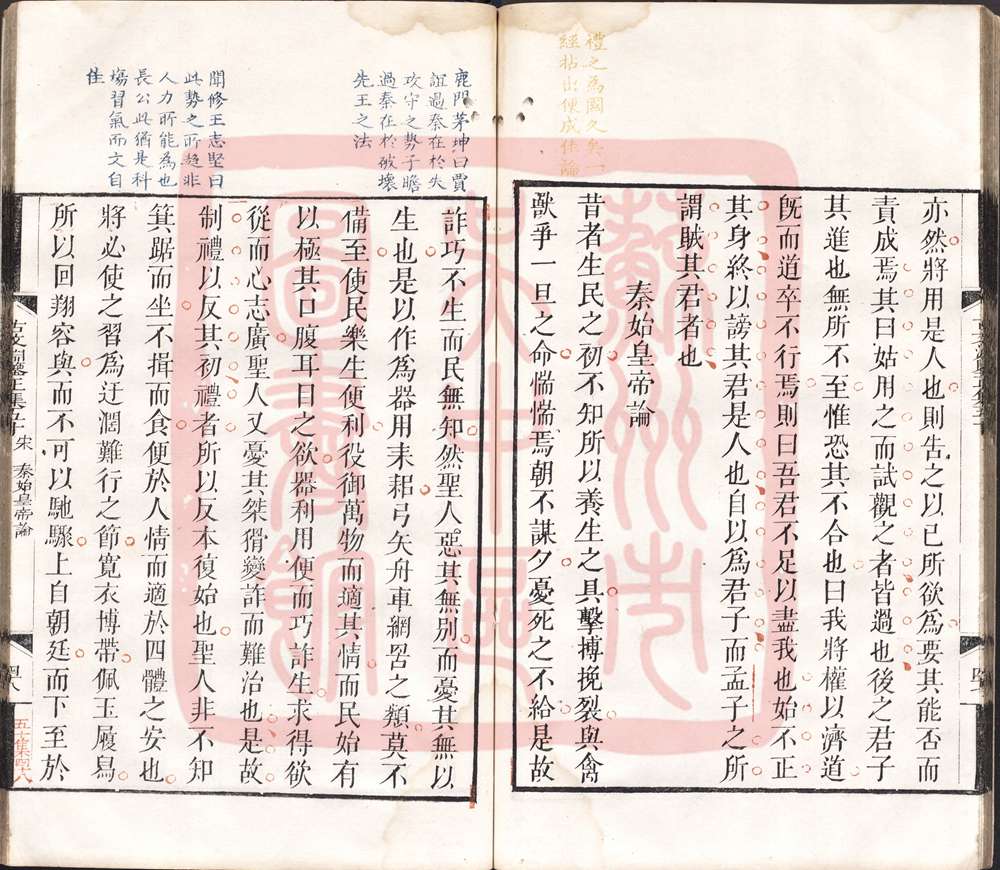 禮之為國久矣一
經拈出便成佳論
亦然將用是人也則告之以已所欲爲要其能否而
責成焉其曰姑用之而試觀之者皆過也後之君子
其進也無所不至惟恐其不合也曰我將權以濟道
旣而道卒不行焉則曰吾君不足以盡我也始不正
其身終以謗其君是人也自以爲君子而孟子之所
謂賊其君者也
秦始皇帝論
昔者生民之初不知所以養生之具擊搏挽裂與禽
獸爭一旦之命惴惴焉朝不謀夕憂死之不給是故
鹿門茅坤曰賈
誼過秦在於失
攻守之勢子瞻
過秦在於破壞
先王之法
聞修王志堅曰
此勢之所趨非
人力所能為也
長公此猶是科
塲習氣而文自
佳
詐巧不生而民無知然聖人惡其無別而憂其無以
生也是以作爲器用耒耜弓矢舟車網罟之類莫不
備至使民樂生便利役御萬物而適其情而民始有
以極其口腹耳目之欲器利用便而巧詐生求得欲
從而心志廣聖人又憂其桀猾變詐而難治也是故
制禮以反其初禮者所以反本復始也聖人非不知
箕踞而坐不揖而食便於人情而適於四體之安也
將必使之習爲迂濶難行之節寬衣博帶佩玉履舄
所以回翔容與而不可以馳驟上自朝廷而下至於
古文淵鑒正集五十 宋 秦始皇帝論
四八
五十集四八
蘇州市
吴中區
圖書館